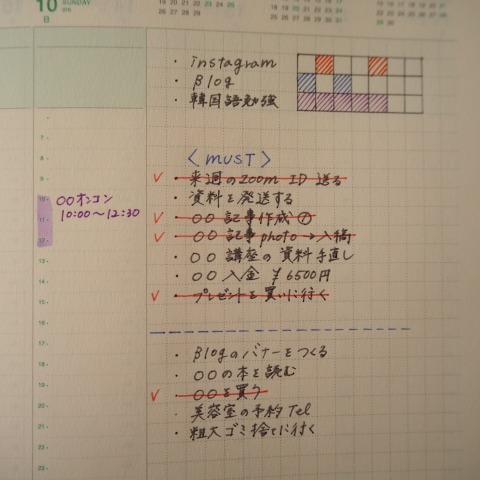 10 SUNDAY
日
・instagram
・Blog
・韓国語勉強
<MUST>
✓・来週のZoom ID 送る
・資料を発送する
✓・〇〇 記事作成⑦
✓・〇〇 記事photo→入稿
・〇〇 講座の資料手直し
・〇〇 入金 ¥6500円
✓・プレゼントを買いに行く
・Blogのバナーをつくる
・〇〇の本を読む
✓・〇〇を買う
・美容室の予約Tel
・粗大ゴミ捨てに行く
〇〇オンコン
10:00〜12:30
7
8
9
10
11
12
13
14
15
16
17
18
19
20
21
22
23